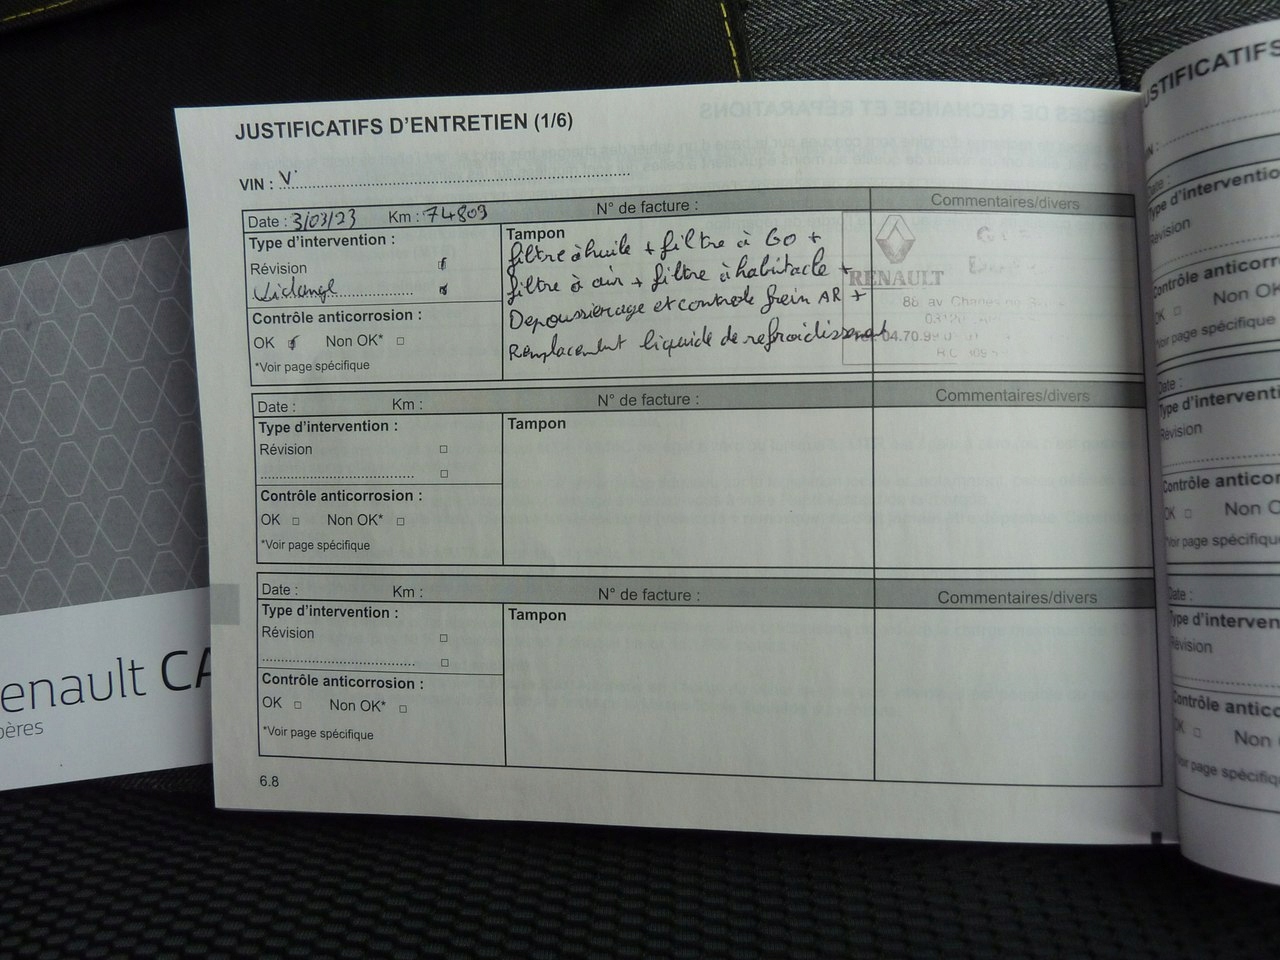 JUSTIFICATIFS D'ENTRETIEN (1/6)
VIN : V
Date : 3/03/23 Km : 74809 N° de facture : Commentaires/divers
Type d'intervention :
Révision
Vidange
Contrôle anticorrosion :
OK Non OK*
*Voir page spécifique
Tampon
filtre à huile + filtre à GO +
filtre à air + filtre à habitacle +
Depoussierage et controle frein AR +
Remplacement liquide de refroidissement
RENAULT
88, av
04.70.9
Date : Km : N° de facture : Commentaires/divers
Type d'intervention :
Révision
Contrôle anticorrosion :
OK Non OK*
*Voir page spécifique
Tampon
Date : Km : N° de facture : Commentaires/divers
Type d'intervention :
Révision
Contrôle anticorrosion :
OK Non OK*
*Voir page spécifique
Tampon
6.8
enault CA
pères
USTIFICATIFS
Date :
Type d'interventio
Révision
Contrôle anticorr
OK Non O
Voir page spécifiqu
Date :
Type d'intervent
Révision
Contrôle anticor
OK Non O
Voir page spécifiqu
Date :
Type d'interven
Révision
Contrôle antico
OK Non
Voir page spécifiq